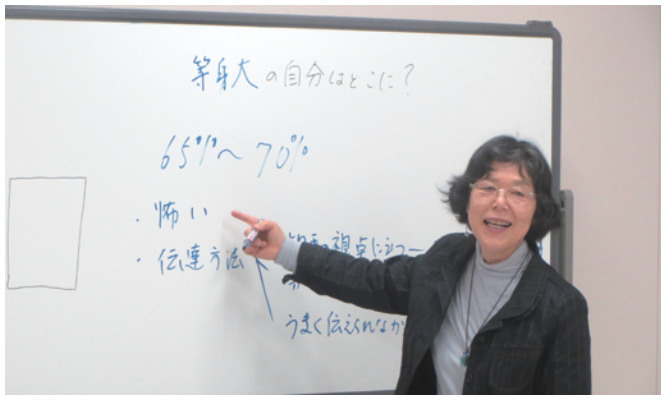 等身大の自分はどこに?
65%~70%
・怖い
・伝達方法
の視点に立つ
うまく伝えられなか